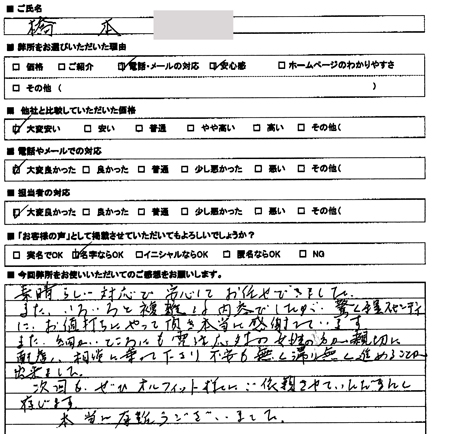 ■ ご氏名
橋本
■ 弊所をお選びいただいた理由
□ 価格 □ ご紹介 ☑ 電話・メールの対応 ☑ 安心感 □ ホームページのわかりやすさ
□ その他 ( )
■ 他社と比較していただいた価格
☑ 大変安い □ 安い □ 普通 □ やや高い □ 高い □ その他(
■ 電話やメールでの対応
☑ 大変良かった □ 良かった □ 普通 □ 少し悪かった □ 悪い □ その他(
■ 担当者の対応
☑ 大変良かった □ 良かった □ 普通 □ 少し悪かった □ 悪い □ その他(
■ 「お客様の声」として掲載させていただいてもよろしいでしょうか?
□ 実名でOK ☑ 名字ならOK □ イニシャルならOK □ 匿名ならOK □ NG
■ 今回弊所をお使いいただいてのご感想をお願いします。
素晴らしい対応で安心してお任せできました。
また、いろいろと複雑な内容でしたが、驚く程スピーディ
に、お値打ちにやって頂き本当に感謝しています
また、細かいところにも 女性の方が親切に
相談に乗って下さり 不安も無く滞り無く進めることが
出来ました。
次回も、ぜひオルフィット様にご依頼させていただきたく
存じます。
本当に有難うございました。